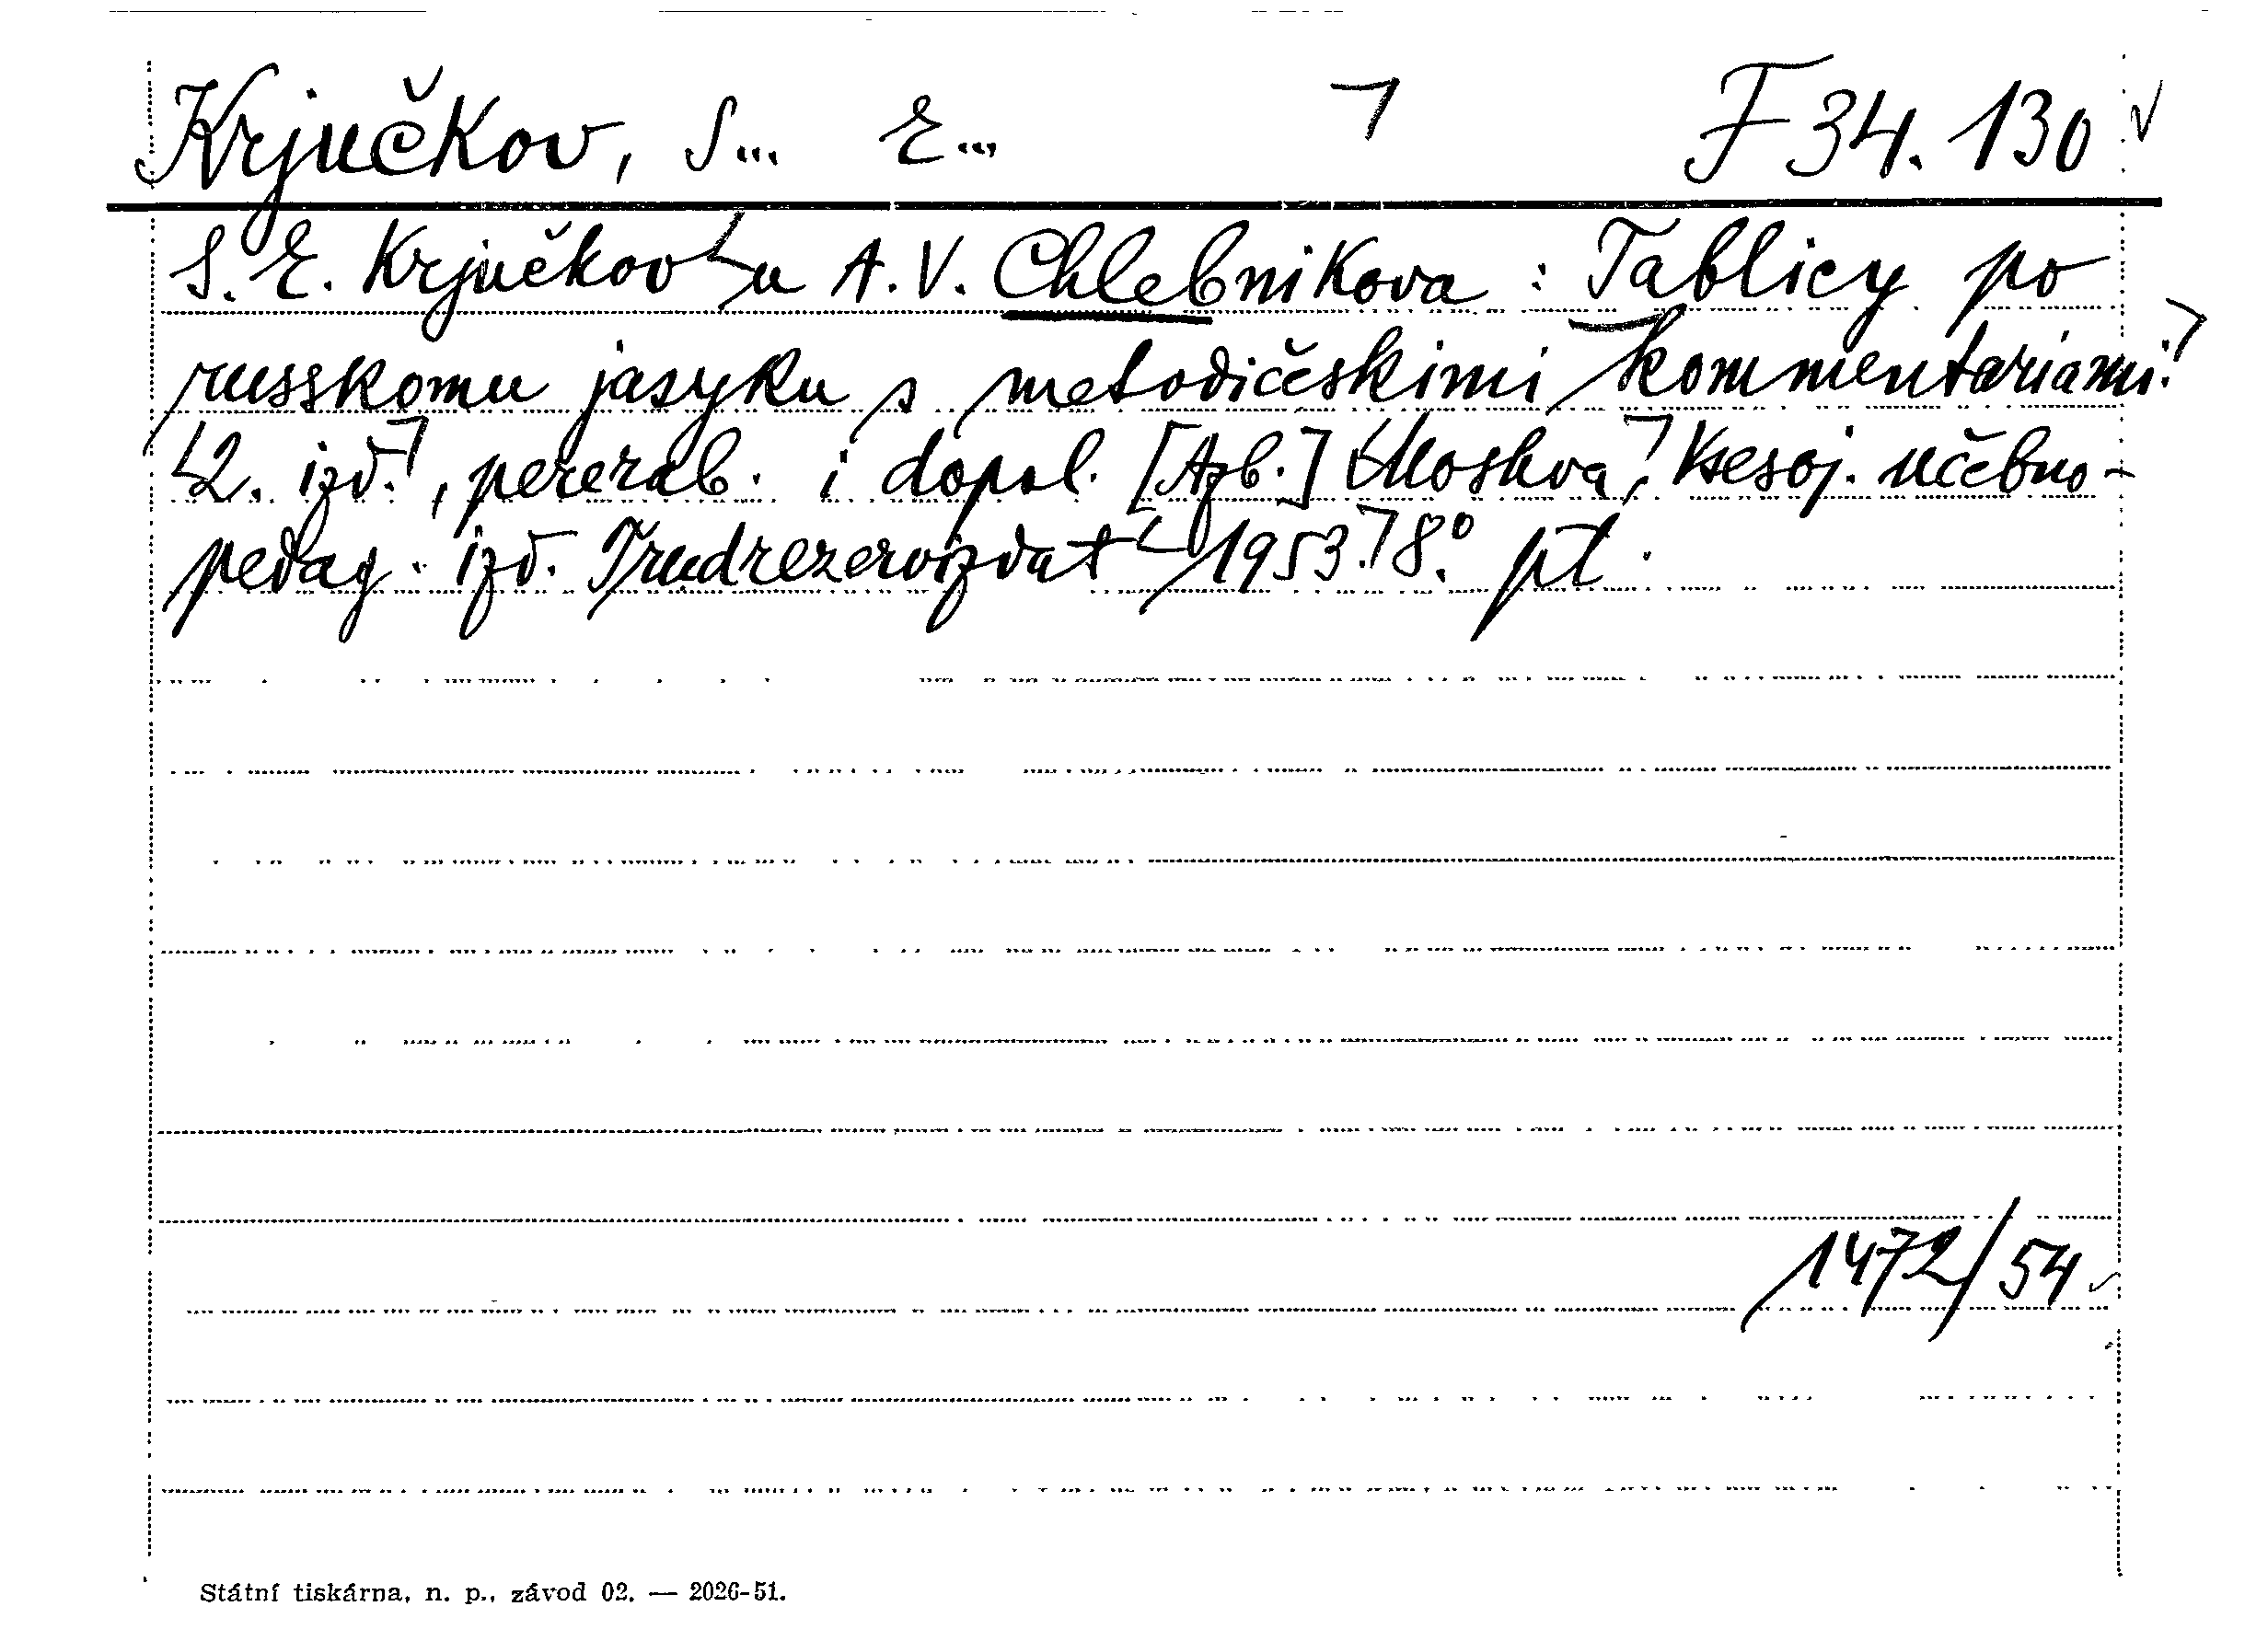 Krjučkov, S... E... F 34.130
S. E. Krjučkov u A. V. Chlebnikova : Tablicy po
russkomu jasyku s metodičeskimi kommentariami.
2. izd., pererab. i dopol. [Azb.] Moskva, Vsesoj. učebno-
pedag. izd. Trudrezervizdat 1953. 8°. pt.
1472/54
Státní tiskárna, n. p., závod 02. — 2026-51.